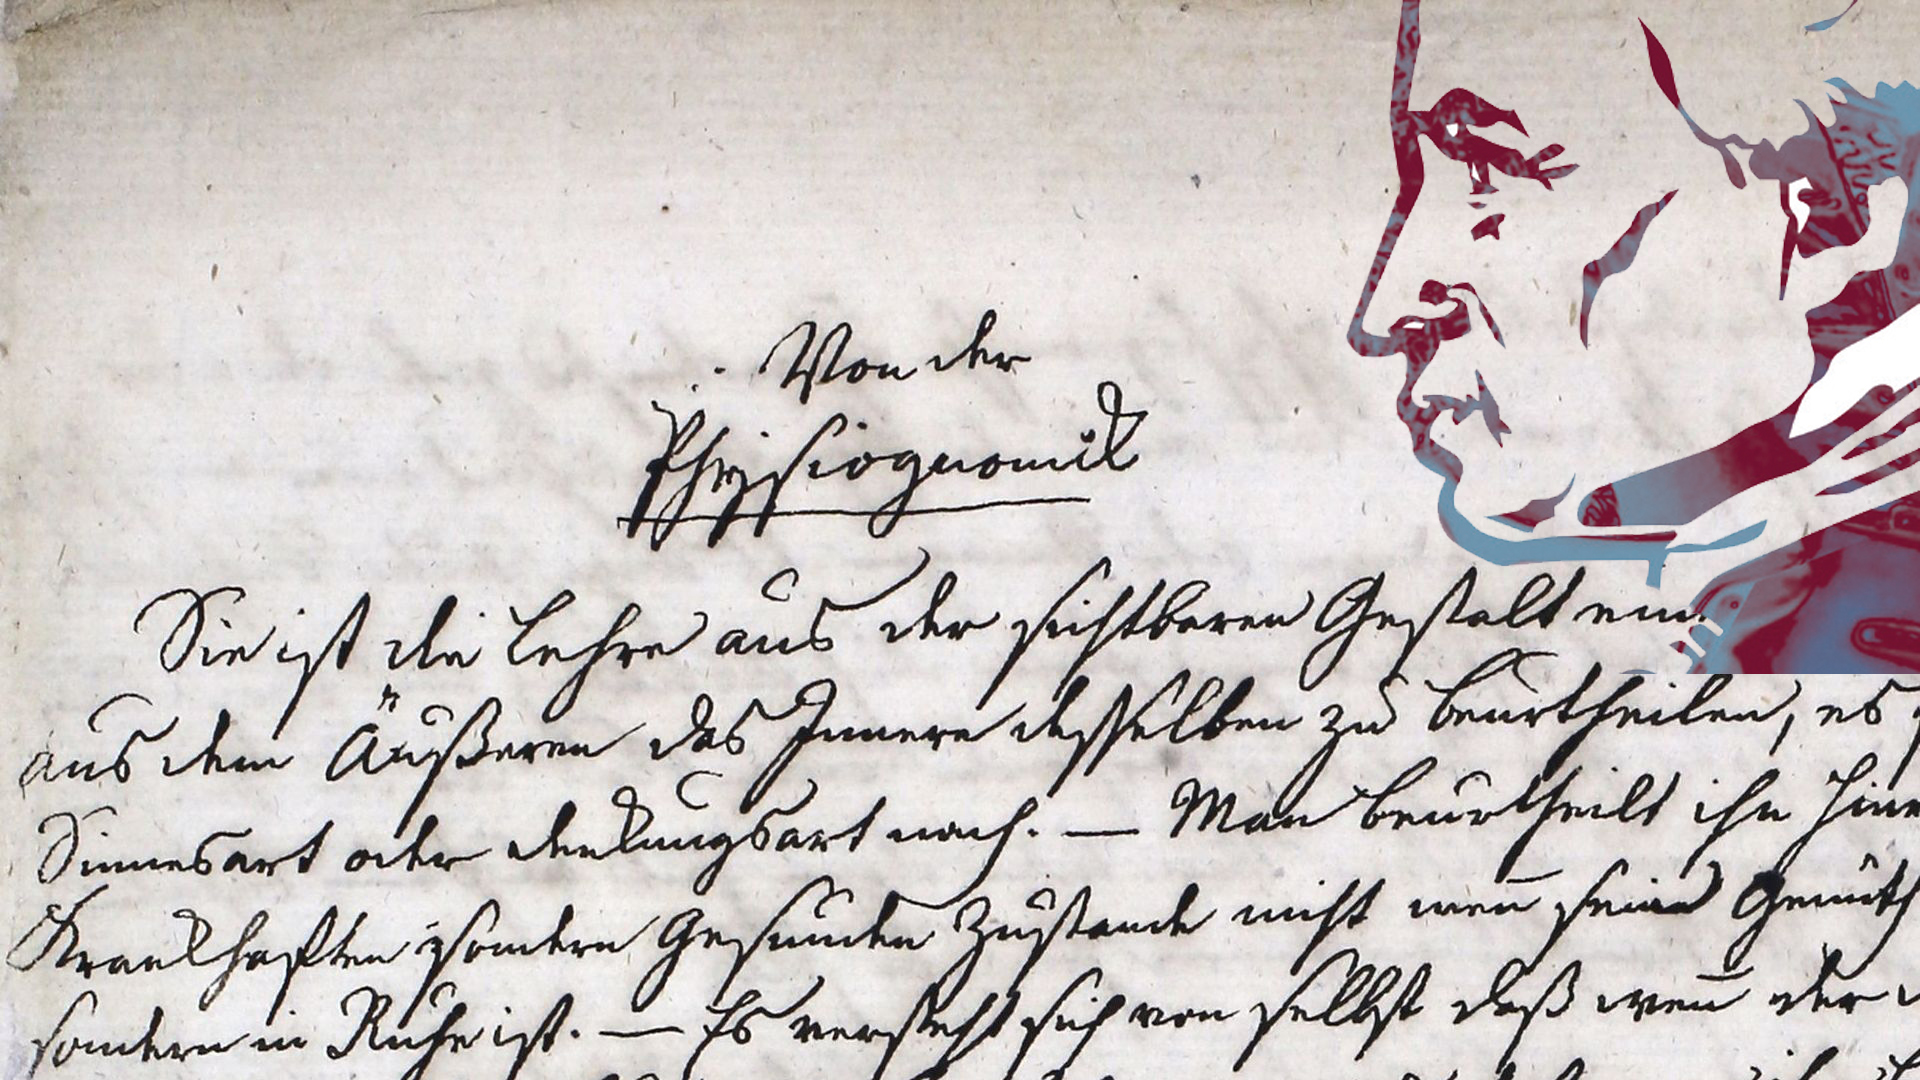 Von der
Physiognomik
Sie ist die Lehre aus der sichtbaren Gestalt
aus dem Äußeren das Innere desselben zu beurtheilen, es
Sinnesart oder denkungsart nach. — Man beurtheilt ihn
Krankhaften sondern Gesunden Zustande nicht weñ sein Gemüth
sondern in Ruhe ist. — Es versteht sich von selbst daß weñ der